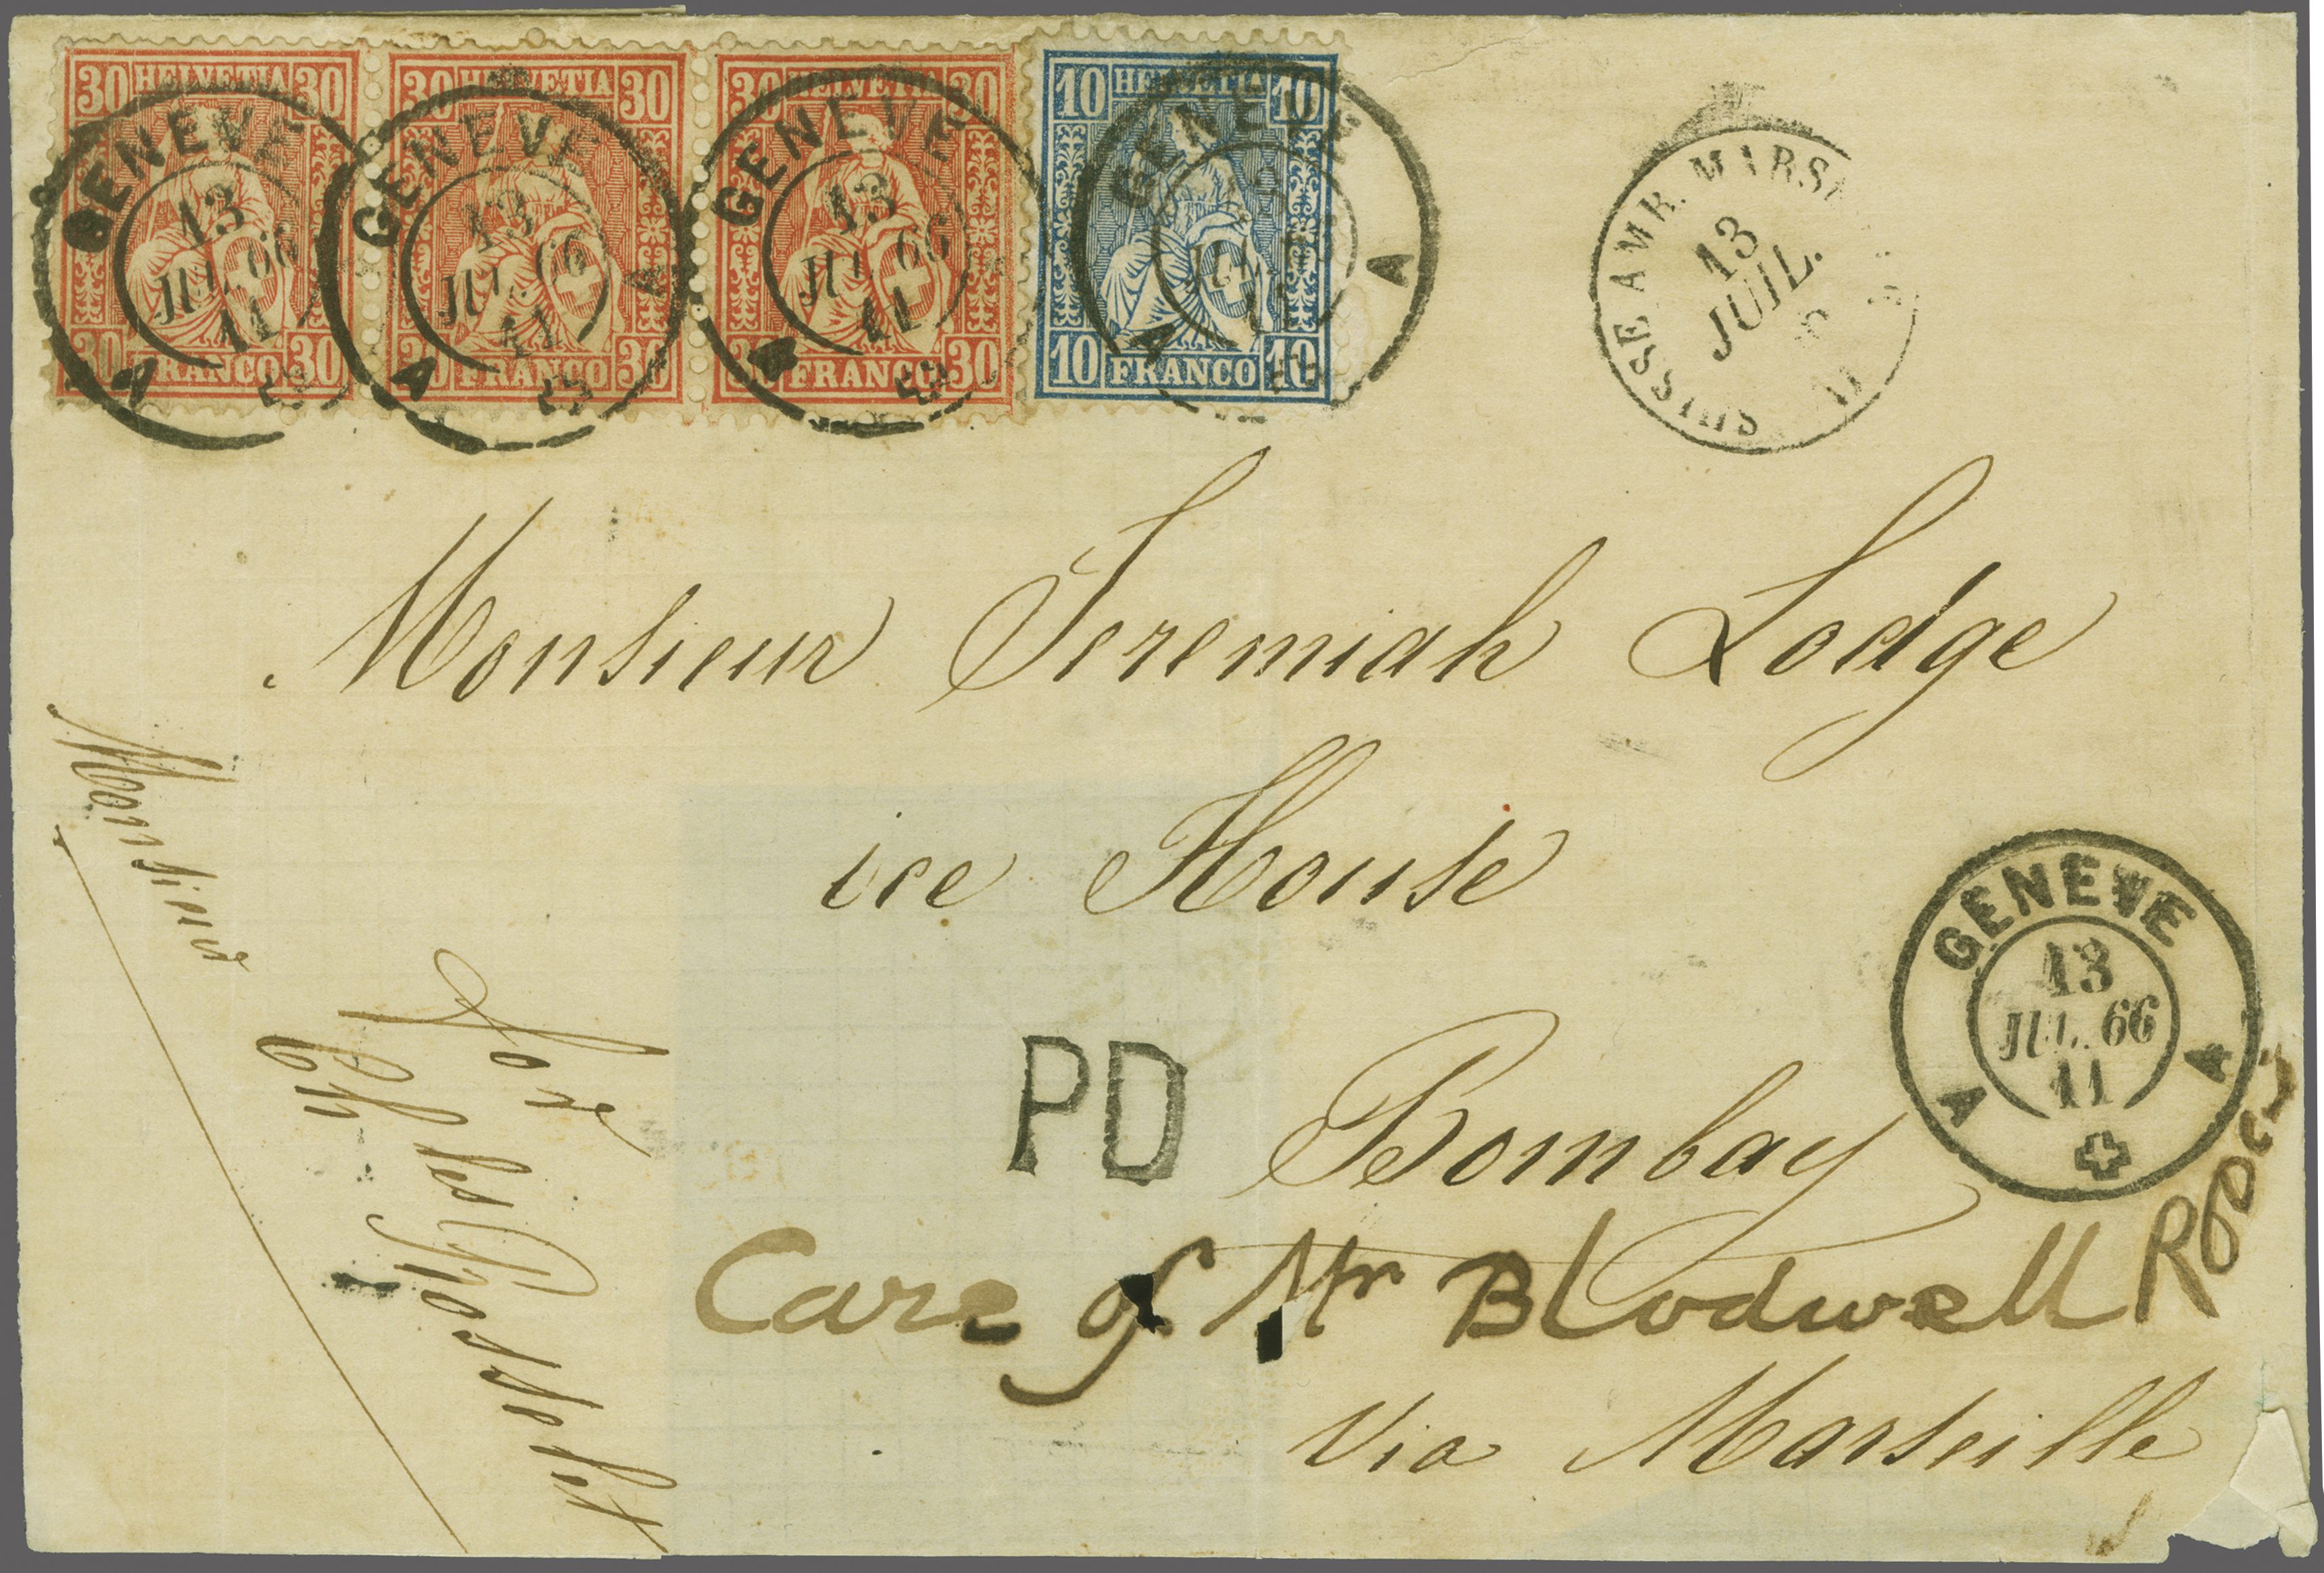 30 HELVETIA 30
30 FRANCO 30
30 HELVETIA 30
30 FRANCO 30
30 HELVETIA 30
30 FRANCO 30
10 HELVETIA 10
10 FRANCO 10
GENEVE
13
JUL. 66
11
A
GENEVE
13
JUL. 66
11
A A
GENEVE
13
JUL. 66
11
A
GENEVE
A A
SUISSE AMB. MARS
13
JUIL.
Monsieur Jeremiah Lodge
ice House
Bombay
PD
GENEVE
13
JUL. 66
11
A A
Care of Mr Blodwell
Via Marseille
Monsieur